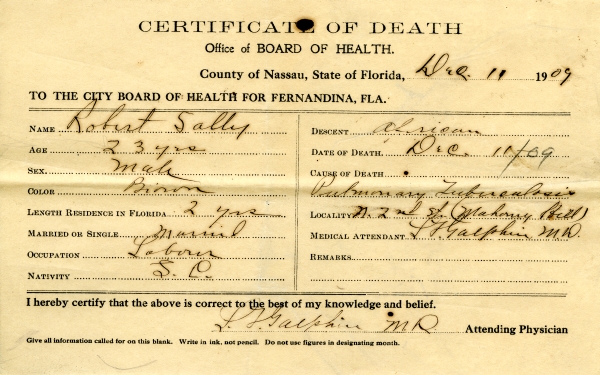 CERTIFICATE OF DEATH
Office of BOARD OF HEALTH.
County of Nassau, State of Florida, Dec. 11 1909
TO THE CITY BOARD OF HEALTH FOR FERNANDINA, FLA.
NAME Robert Sally
AGE 23 yrs
SEX. Male
COLOR
LENGTH RESIDENCE IN FLORIDA 2 yrs
MARRIED OR SINGLE Married
OCCUPATION Labour
NATIVITY S. C.
DESCENT African
DATE OF DEATH Dec. 11/09
CAUSE OF DEATH
Pulmonary Tuberculosis
LOCALITY N. 2nd St (Mahony Hill)
MEDICAL ATTENDANT Galphin MD.
REMARKS
I hereby certify that the above is correct to the best of my knowledge and belief.
Galphin MD Attending Physician
Give all information called for on this blank. Write in ink, not pencil. Do not use figures in designating month.